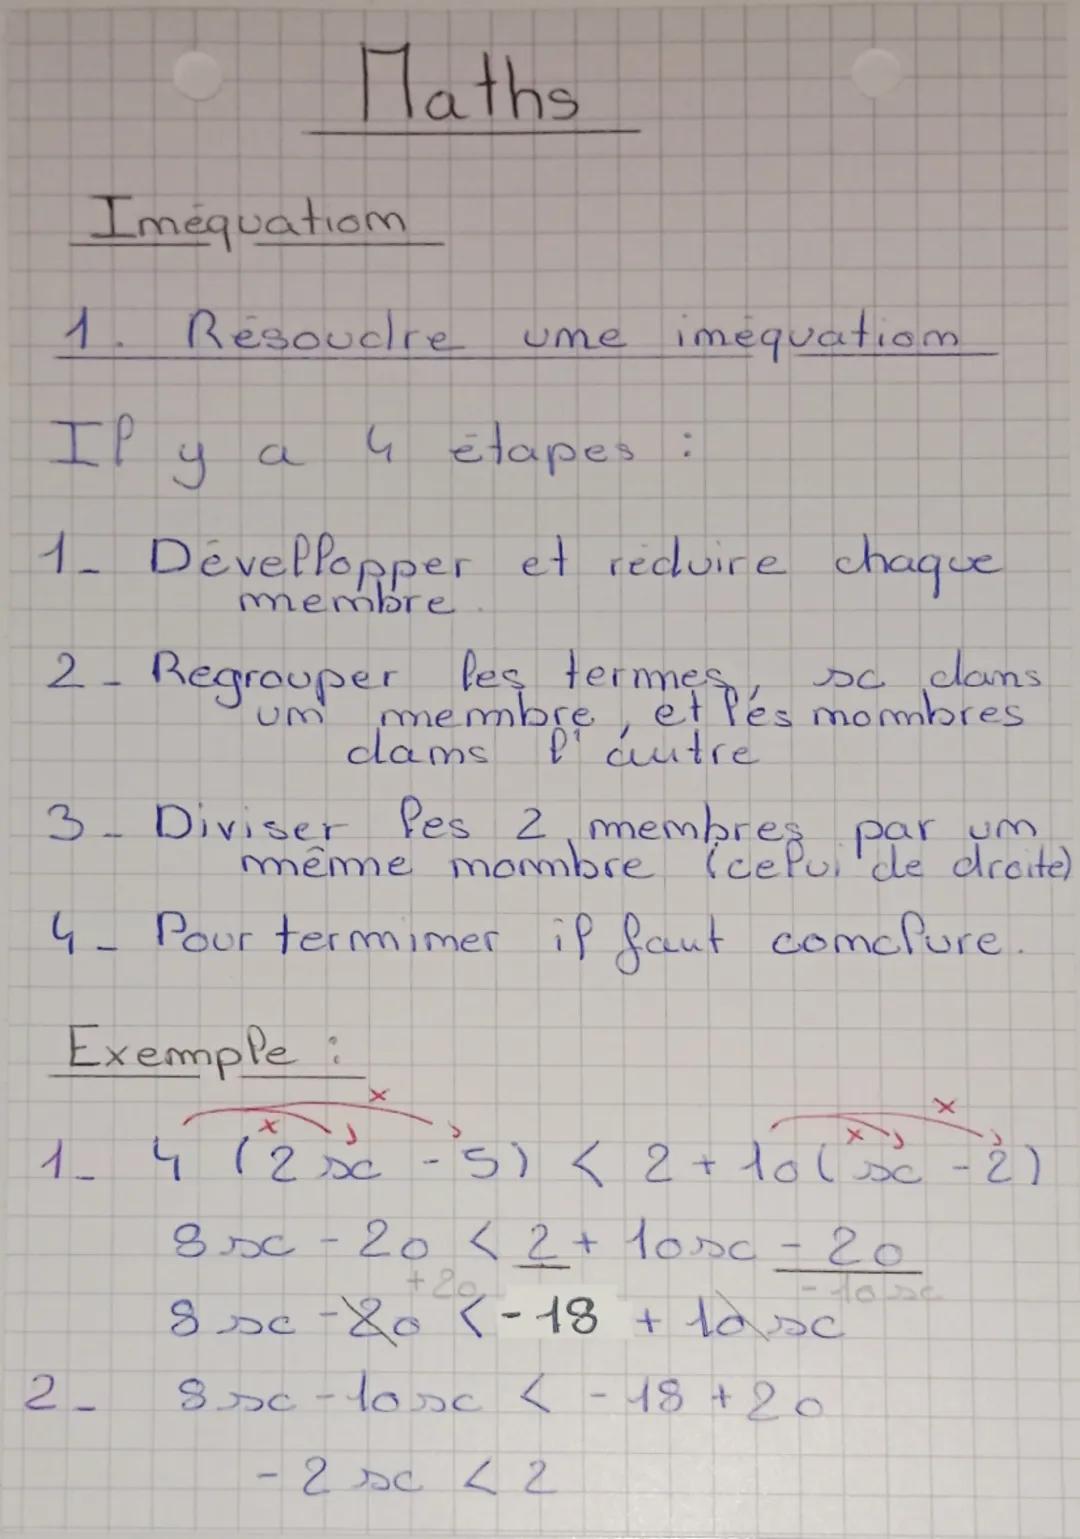 Maths
Inéquation
1. Résoudre une inéquation
Il y a 4 étapes :
1_ Dévellopper et réduire chaque
membre.
2_ Regrouper les termes, x dans
un membre, et les nombres
dans l'autre
3_ Diviser les 2 membres par un
même nombre (celui de droite)
4_ Pour terminer il faut conclure.
Exemple :
x x x x
1_ 4 (2x - 5) < 2 + 10(x - 2)
8x - 20 < 2 + 10x - 20
+20 - 10x
8x - 20 < - 18 + 10x
2_ 8x - 10x < - 18 + 20
- 2x < 2